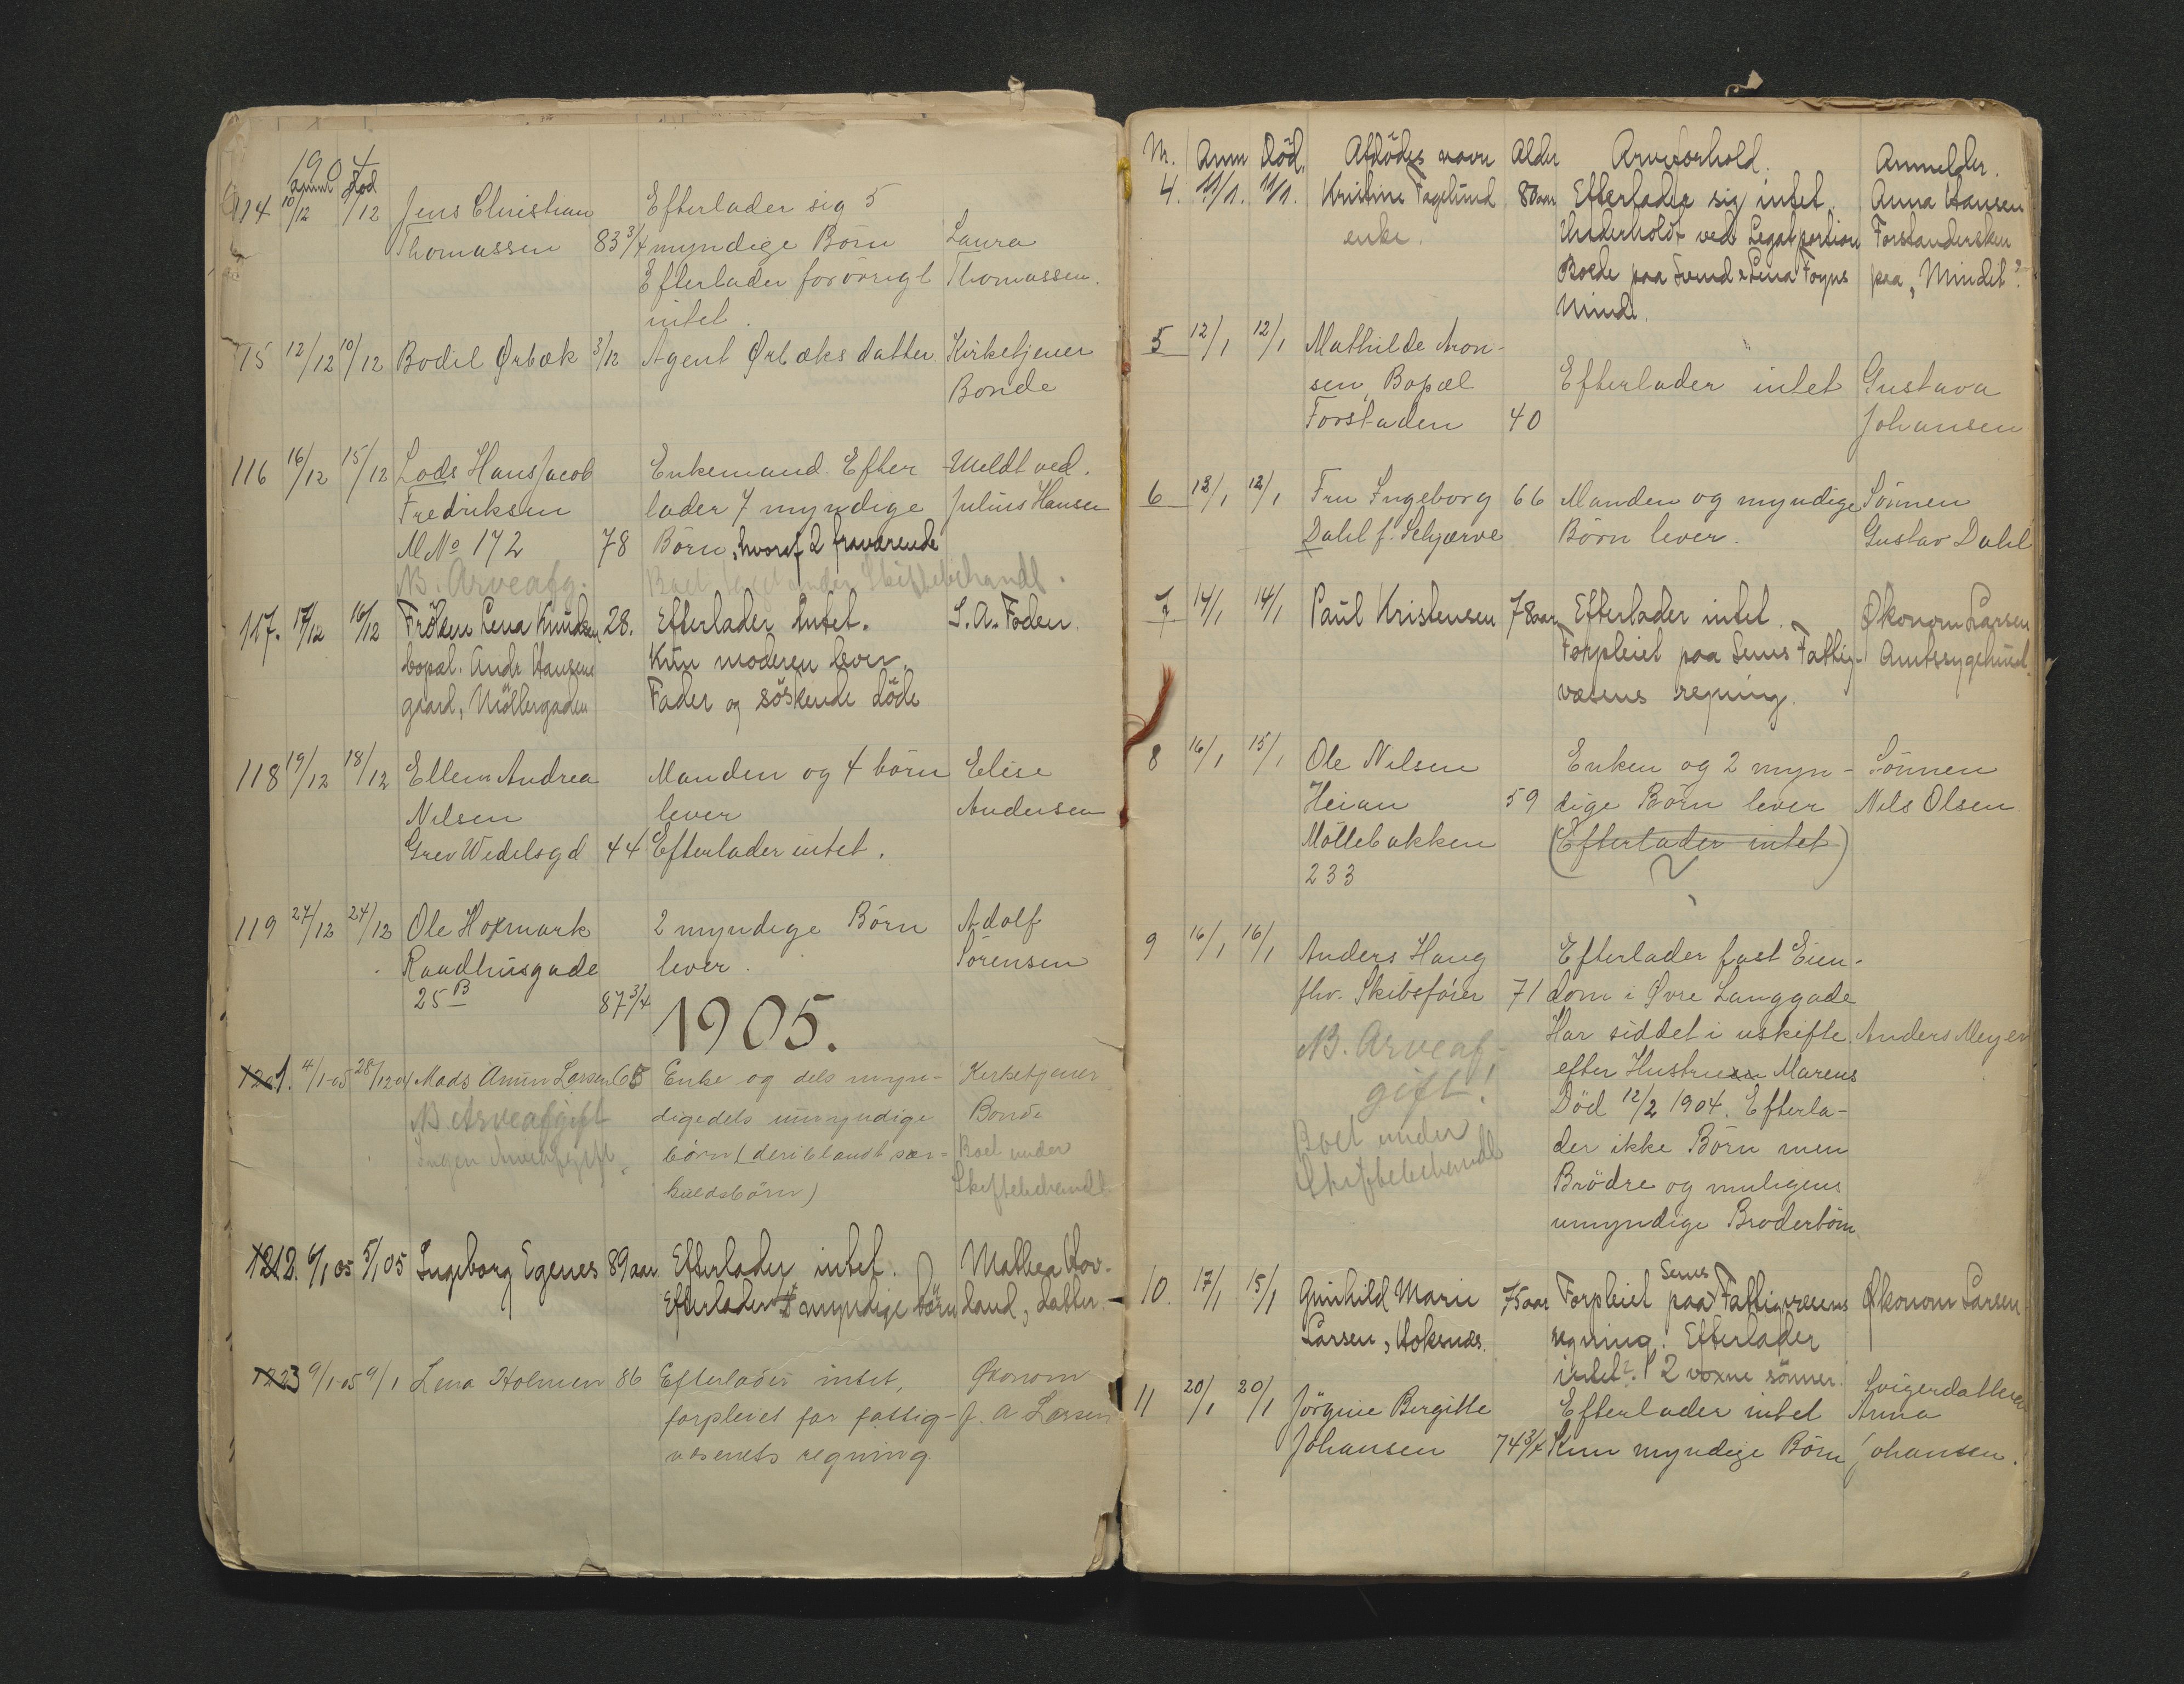 1904
Anm Död
114 10/12 9/12 Jens Christian Efterlader sig 5
Thomassen 83 3/4 myndige Börn Laura
Efterlader forövrigt Thomassen.
intet.
115 12/12 10/12 Bodil Ørbæk 3/12 Agent Ørbæks datter Kirketjener
Bonde
116 16/12 15/12 Lods Hans Jacob Enkemand. Efter- Meldt ved.
Fredriksen lader 7 myndige Julius Hansen
M No 172 78 Börn, hvoraf 2 fraværende
NB. Arveafg. Boet under Skiftebehandl.
117. 17/12 16/12 Fröken Lena Knudsen 28. Efterlader Intet. S. A. Foden.
bopæl. Andr. Hansens Kun moderen lever.
gaard, Möllergaden Fader og söskende döde
118 19/12 18/12 Ellen Andrea Manden og 4 börn Elise
Nilsen lever Andersen
Grev Wedelsgd 44 Efterlader intet.
119 27/12 24/12 Ole Hoxmark 2 myndige Börn Adolf
Raadhusgade lever. Sörensen
25 B 87 3/4
1905.
1201. 4/1-05 28/12-04 Mads Larsen 65 Enke og dels myn- Kirketjener
NB Arveafgift digedels umyndige Bonde
Ingen Arveafgift. börn (deriblandt sær- Boet under
kuldsbörn) Skiftebehandl.
1212. 6/1 05 5/1 05 Ingeborg Egenes 89 aar Efterlader intet. Mathea Hov-
Efterlader myndige börn land, datter.
1223 9/1-05 9/1 Lena Holmen 86 Efterlader intet, Økonom
forpleiet for fattig- J. A Larsen
væsenets regning.
Nr. Anm Död. Afdödes navn Alder Arveforhold. Anmelder.
4. 11/1. 11/1. Kristine Fagelund 80 aar Efterlader sig intet. Anna Hansen
enke. Underholdt ved Legatportion Forstandersken
Boede paa Svend & Lena Foyns paa "Mindet".
Minde.
5 12/1 12/1 Mathilde Aron-
sen, Bopæl Efterlader intet Gustava
Forstaden 40 Johansen
6 13/1 12/1 Fru Ingeborg 66 Manden og myndige Sönnen
Dahl f. Schjærve Börn lever. Gustav Dahl
7 14/1 14/1 Paul Kristensen 78 aar Efterlader intet. Økonom Larsen
Forpleiet paa Sems Fattig- Amtssygehuset.
væsens regning.
8 16/1 15/1 Ole Nilsen Enken og 2 myn- Sönnen
Heian 59 dige Börn lever Nils Olsen
Möllebakken (Efterlader intet)
233
9 16/1 16/1 Anders Haug Efterlader fast Eien-
fhv. Skibsförer 71 dom i Øvre Langgade
NB. Arveaf- Har siddet i uskifte Anders Meyer
gift! efter Hustruen Marens
Boet under Död 12/2 1904. Efterla-
Skiftebehandl der ikke Börn men
Brödre og muligens
umyndige Broderbörn
10. 17/1 15/1 Gunhild Marie 75 aar Forpleiet paa Sems Fattigvæsens Økonom Larsen
Larsen, Hoksnæs. regning. Efterlader
intet. 2 voxne sönner.
11 20/1 20/1 Jörgine Birgitte Efterlader intet Svigerdatteren Anna
Johansen 74 3/4 Kun myndige Börn Johansen.